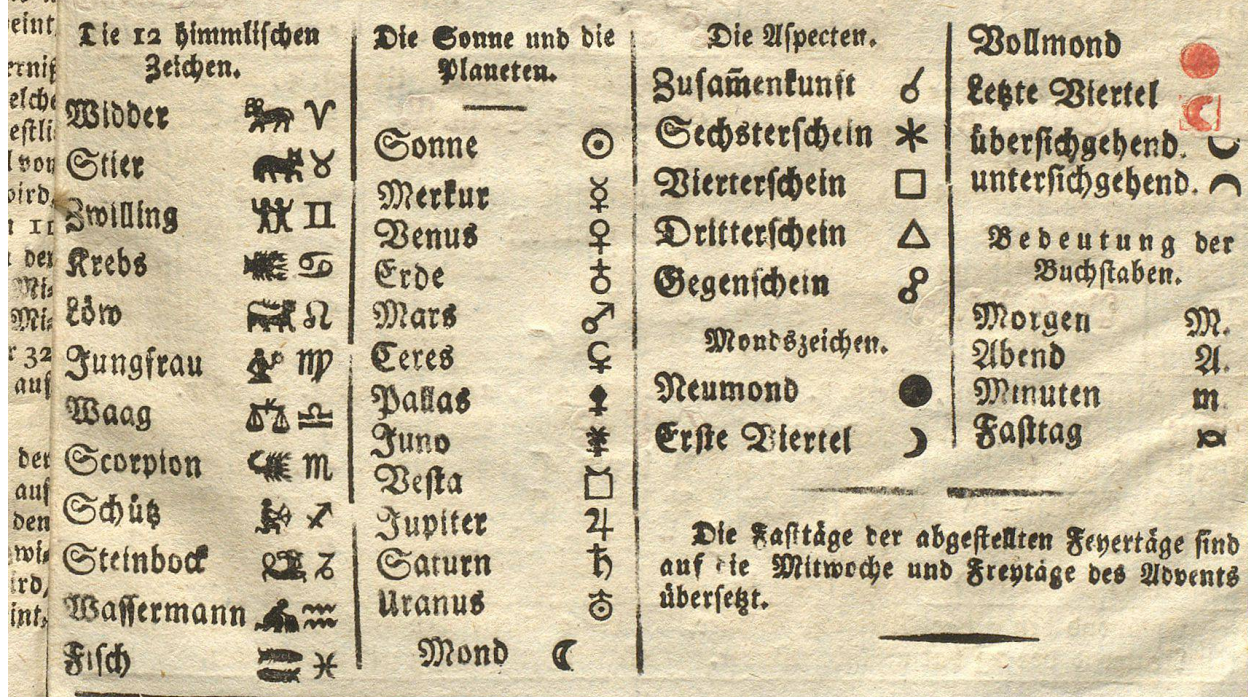 Die 12 himmlischen
Zeichen.
Widder ♈
Stier ♉
Zwilling ♊
Krebs ♋
Löw ♌
Jungfrau ♍
Waag ♎
Scorpion ♏
Schütz ♐
Steinbock ♑
Wassermann ♒
Fisch ♓
Die Sonne und die
Planeten.
Sonne ☉
Merkur ☿
Venus ♀
Erde ♁
Mars ♂
Ceres ⚳
Pallas ⚴
Juno ⚵
Vesta ⚶
Jupiter ♃
Saturn ♄
Uranus ⛢
Mond ☾
Die Aspecten.
Zusam̄enkunft ☌
Sechsterschein ⚹
Vierterschein □
Dritterschein △
Gegenschein ☍
Mondszeichen.
Neumond ●
Erste Viertel ☽
Vollmond
Letzte Viertel
übersichgehend.
untersichgehend.
Bedeutung der
Buchstaben.
Morgen M.
Abend A.
Minuten m
Fasttag
Die Fasttäge der abgestellten Feyertäge sind
auf die Mitwoche und Freytäge des Advents
übersetzt.